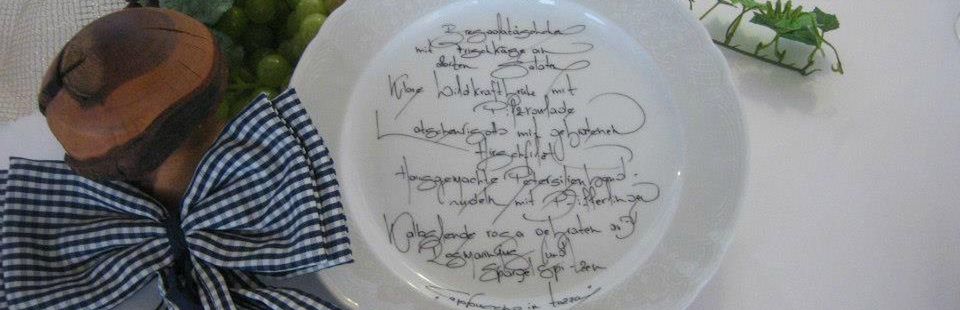 Bresaolatäschchen
mit Frischkäse an
zarten Salaten
Klare Wildkraftbrühe mit
Pilzroulade
Latschenrisotto mit gebratenem
Hirschfilet
Hausgemachte Petersilienband-
nudeln mit Pfifferlingen
Kalbslende rosa gebraten an
Rosmarinjus und
Spargelspitzen
in tazza